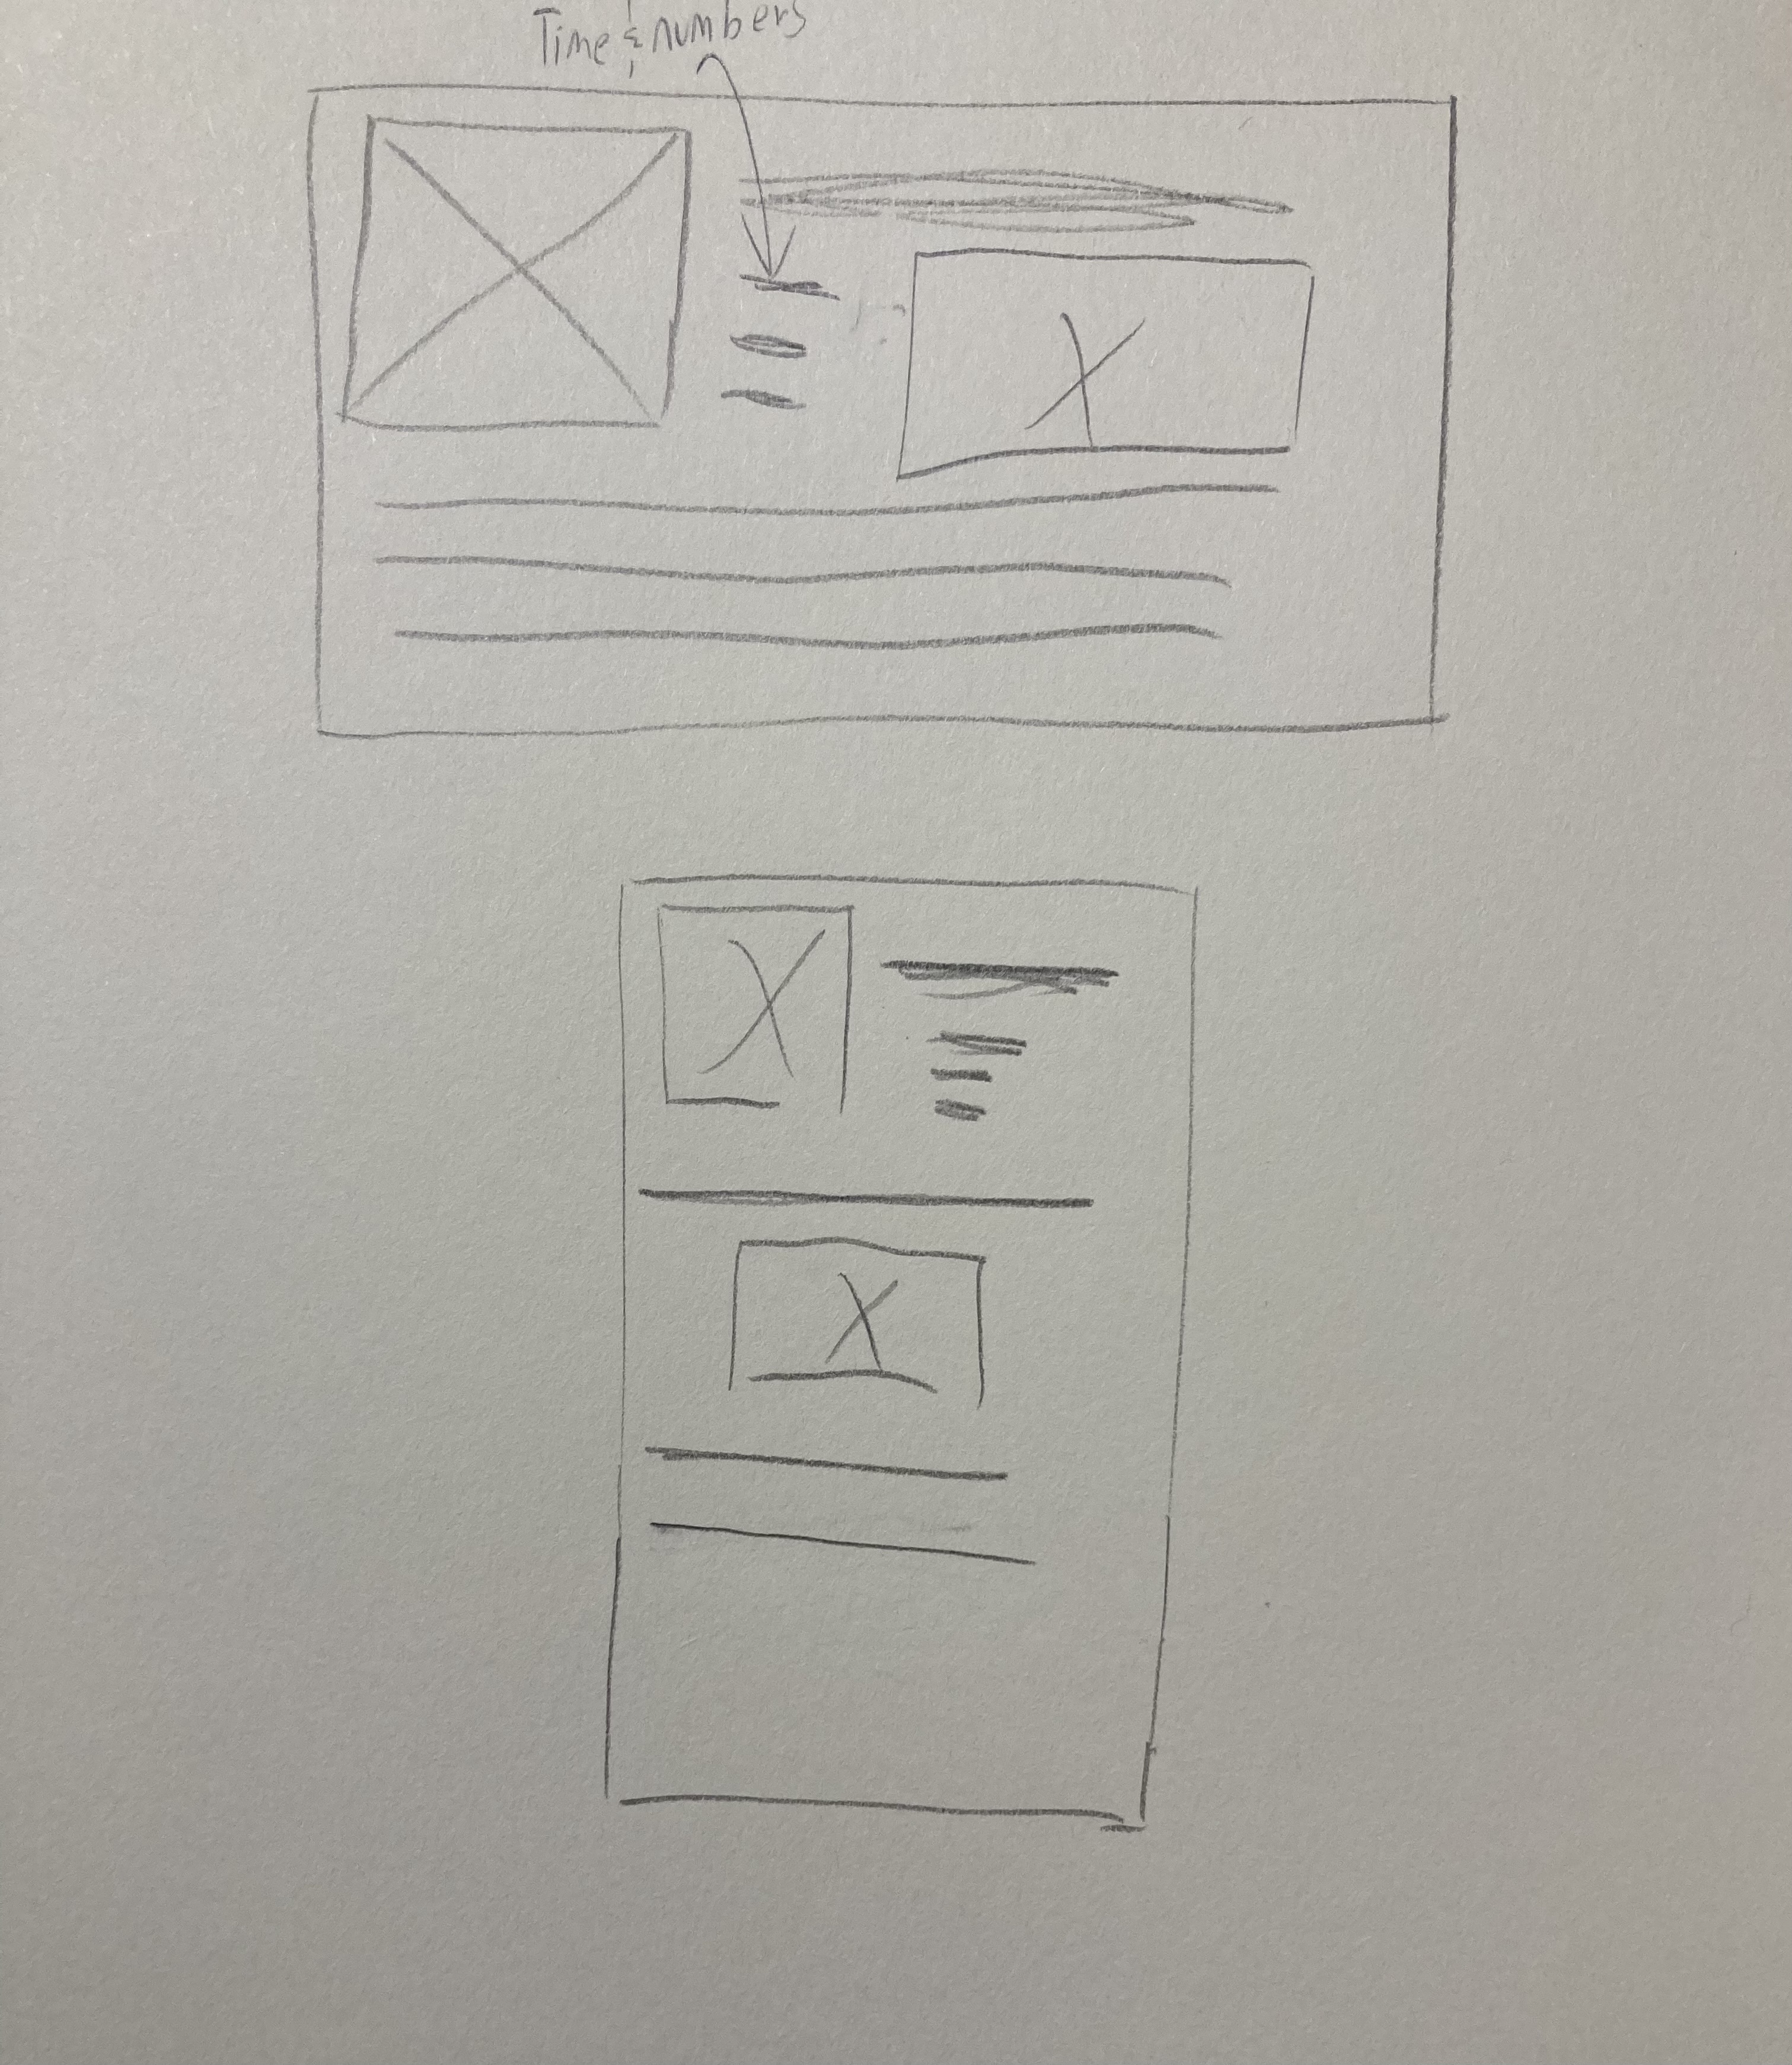 Time & numbers